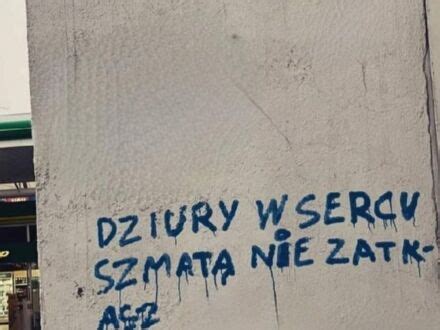 DZIURY W SERCU
SZMATĄ NIE ZATK-
ASZ